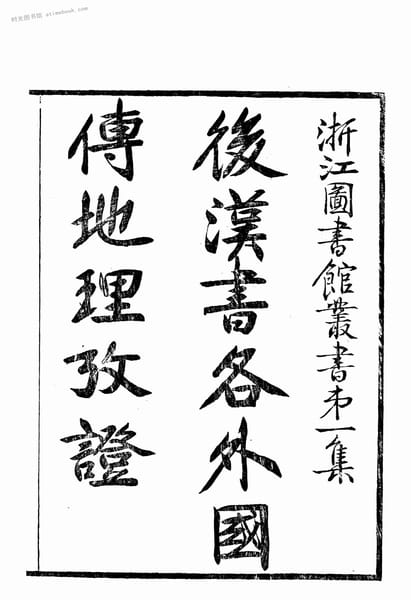 时光图书馆 atimebook.com
浙江圖書館叢書第一集
後漢書各外國
傳地理攷證